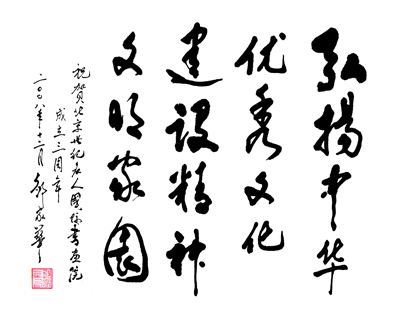 弘揚中华
优秀文化
建设精神
文明家园
祝賀北京世纪名人國际書画院
成立三周年
二〇〇八年十二月 邹家華